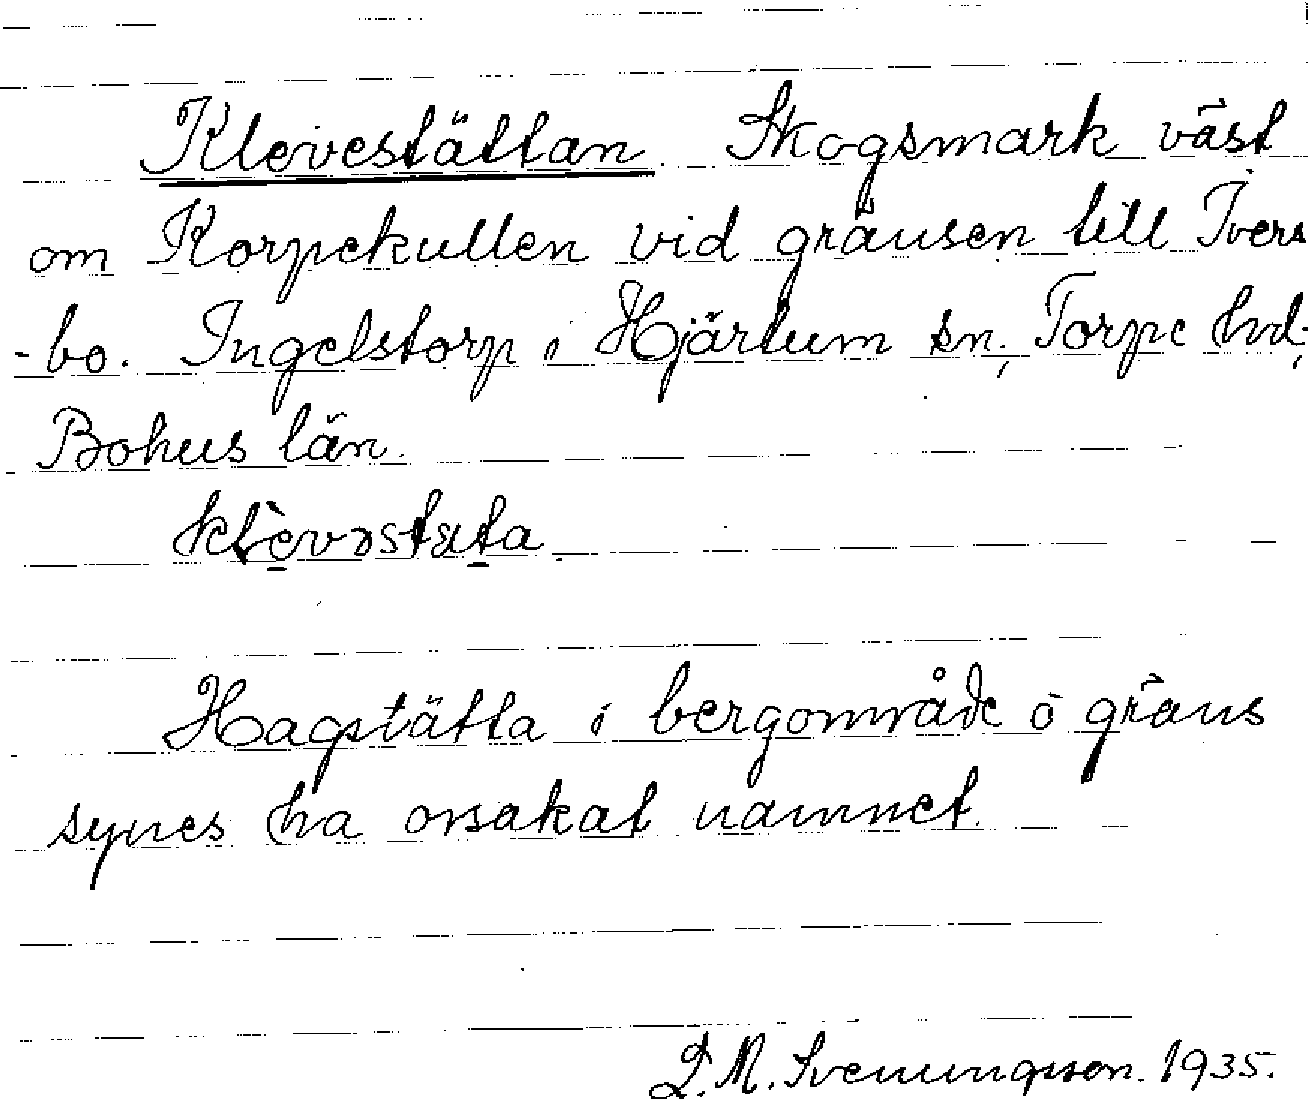 Klevestättan. Skogsmark väst
om Korpekullen vid gränsen till Ivers
-bo. Ingelstorp i Hjärtum sn., Torpe hd.,
Bohus län.
Hagstätta i bergområde ö gräns
synes ha orsakat namnet.
L. M. Svenungsson. 1935.